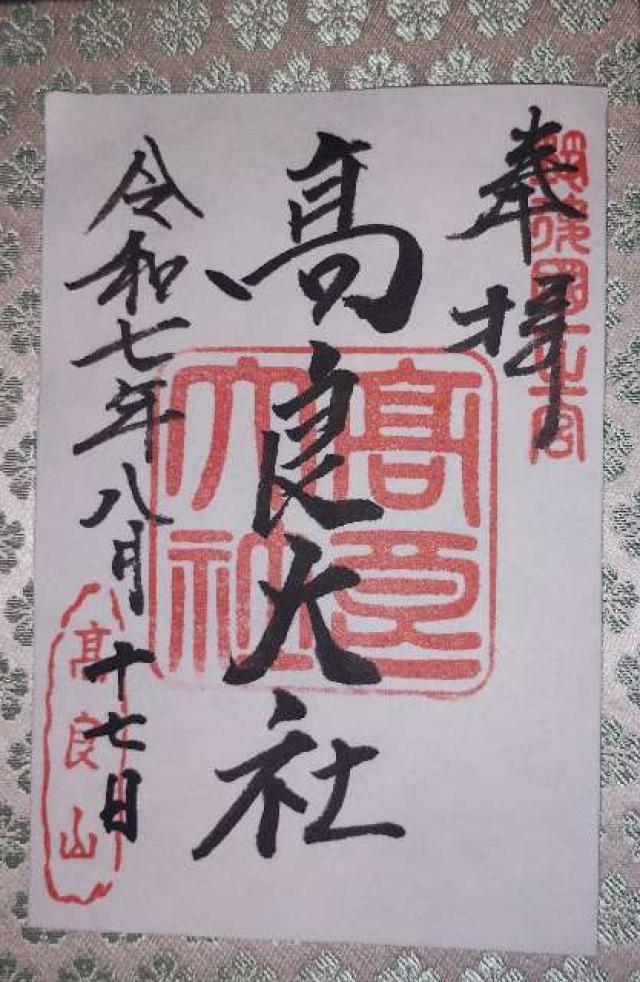 奉拝
筑後國一之宮
髙良大社
髙良大社
令和七年八月十七日
髙良山